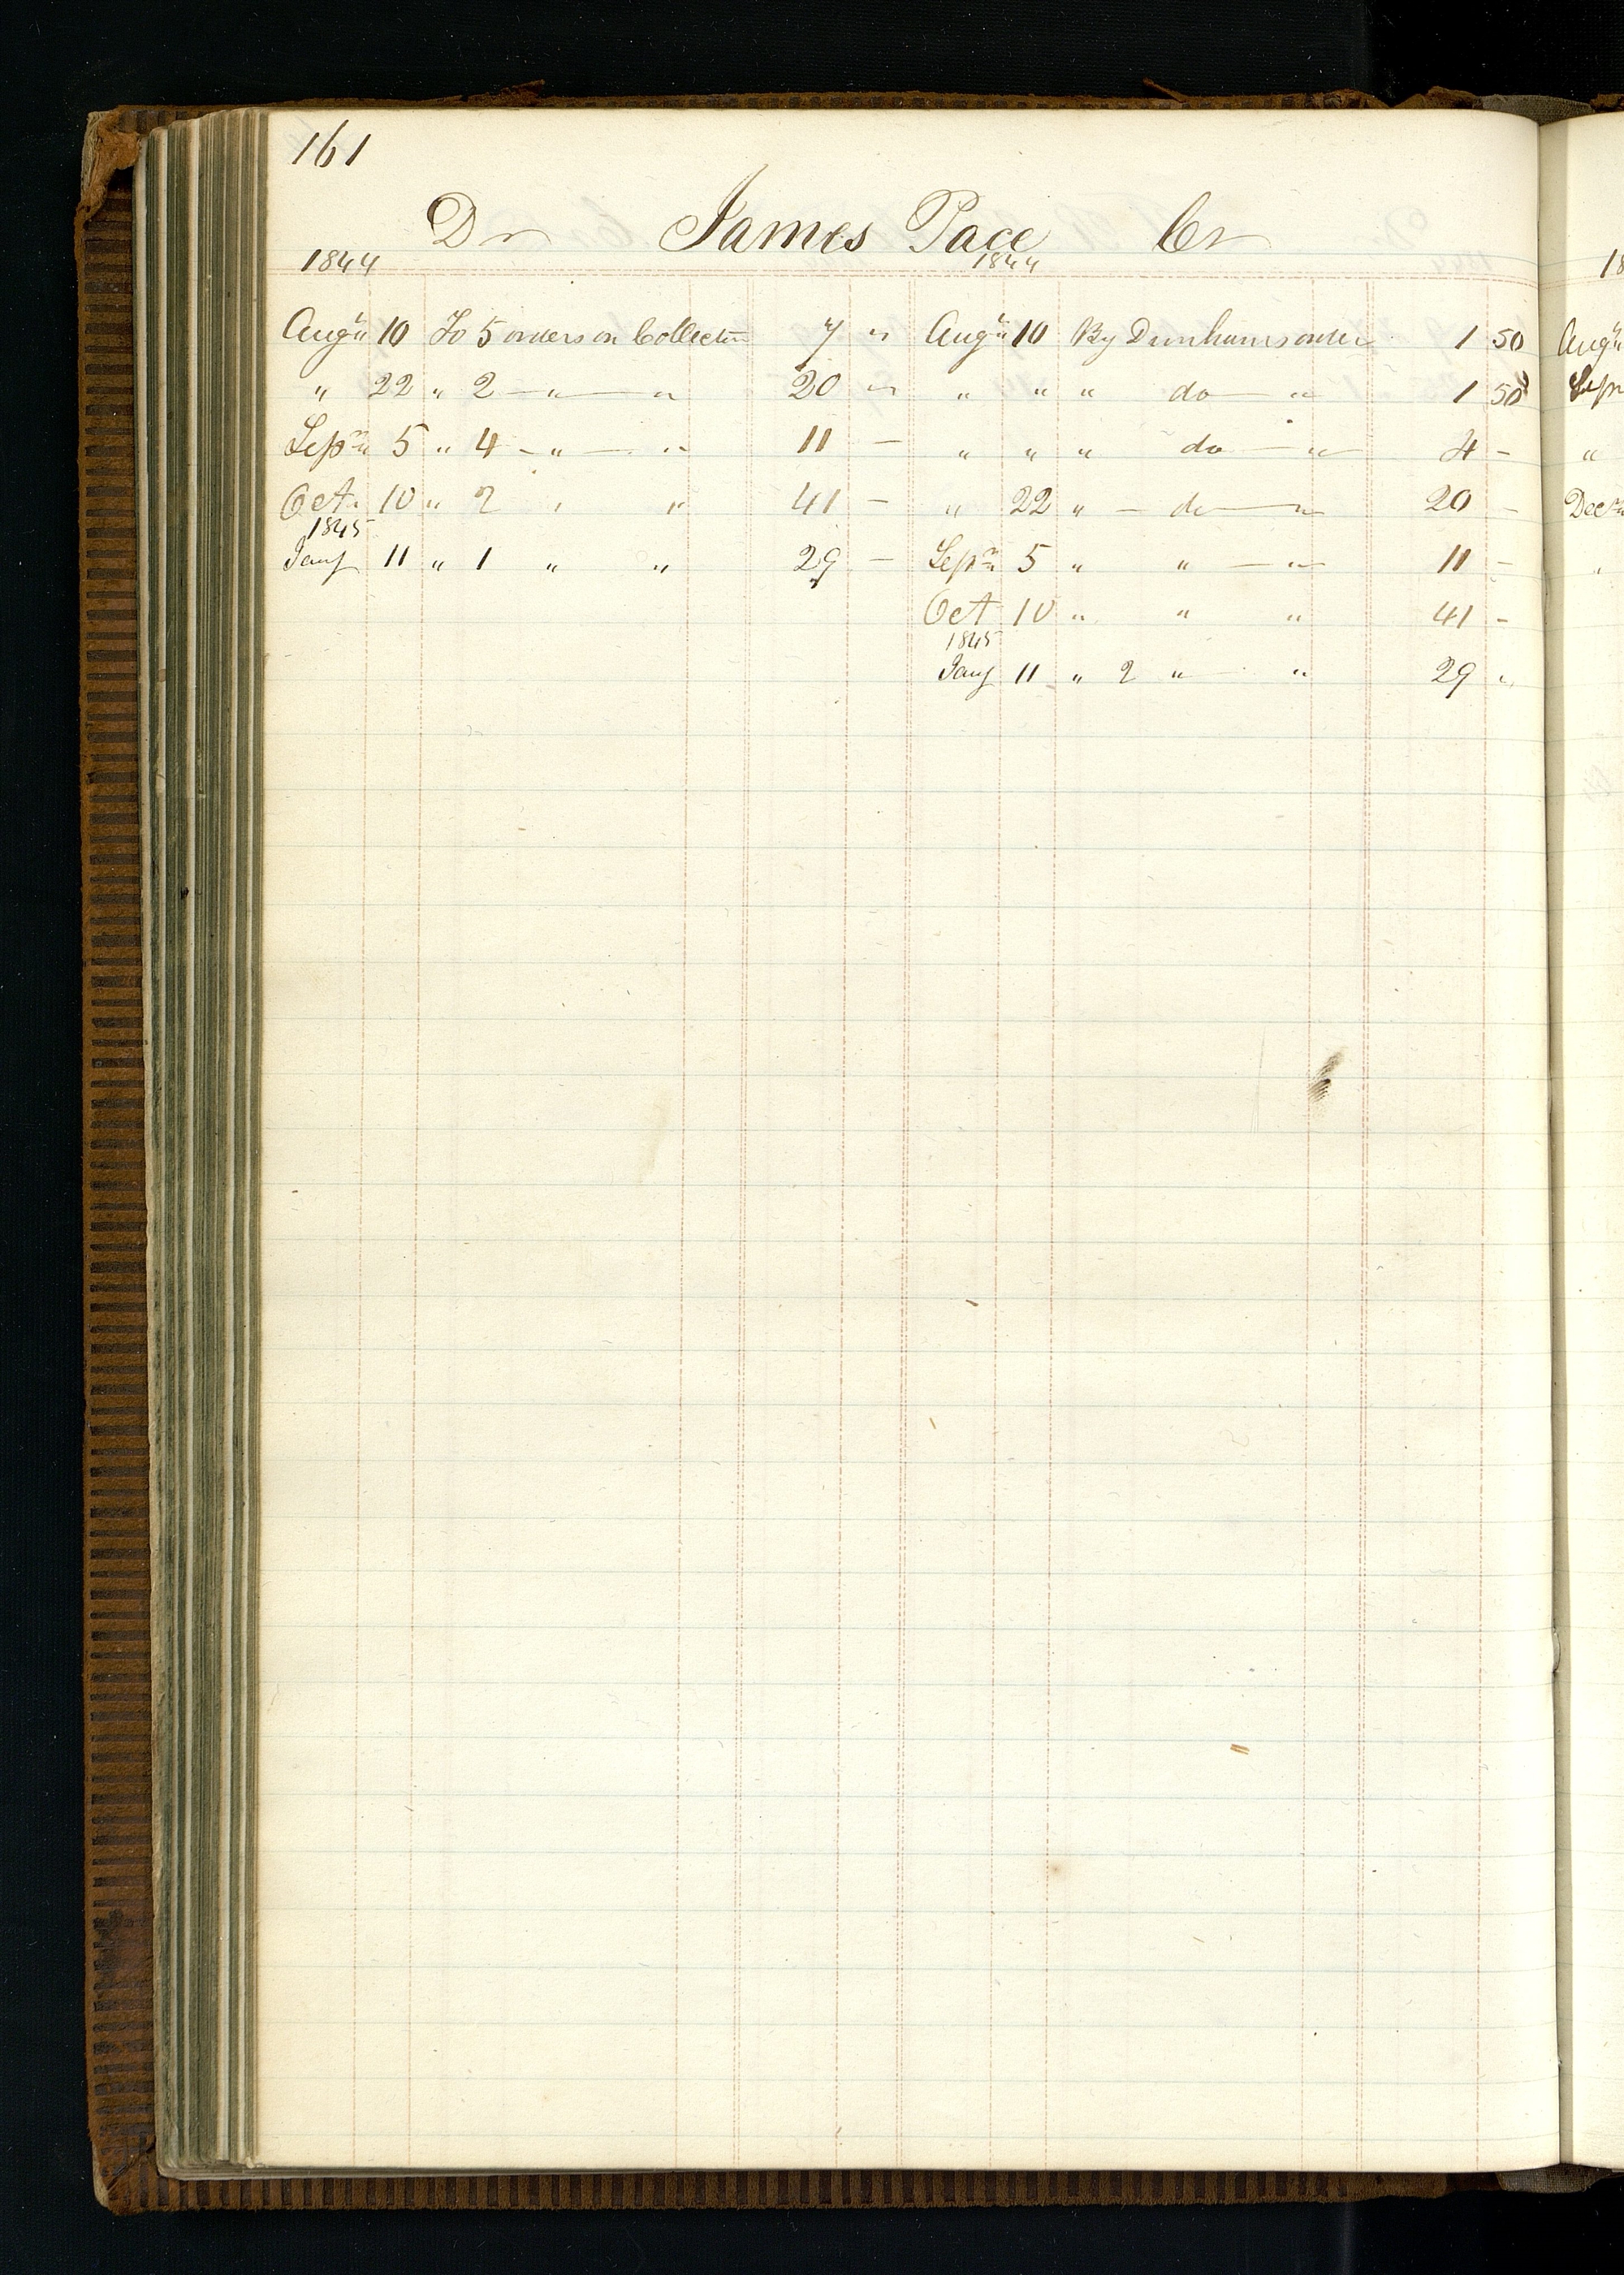 161
Dr James Pace Cr
1844 1844
Augt 10 To 5 orders on Collector 7 " Augt 10 By Dunhams order 1 50
" 22 " 2 — " — " 20 " " " " do — " 1 50
Sepr 5 " 4 - " — " 11 — " " " do — " 4 -
Oct. 10 " 2 " " 41 — " 22 " — do — " 20 -
1845
Jany 11 " 1 " " 29 — Sepr 5 " " — " 11 -
Oct 10 " " " 41 -
1845
Jany 11 " 2 " " 29 "
18
Augt
Sepr
"
Decr
"